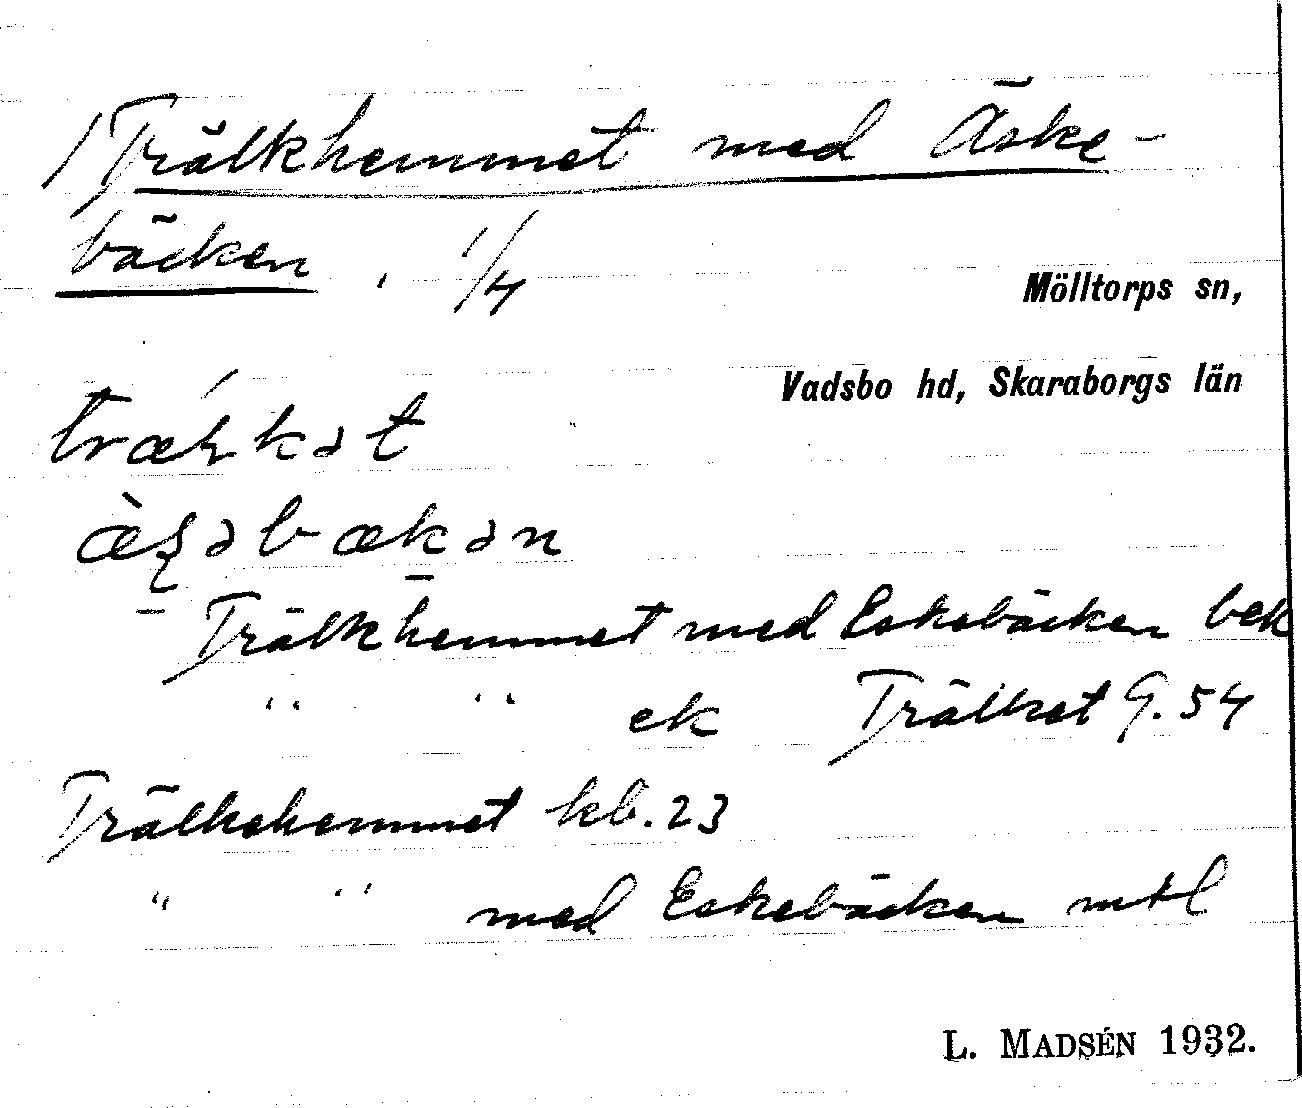 /Trälkhemmet med Äske-
bäcken, 1/4
Mölltorps sn,
Vadsbo hd, Skaraborgs län
bækən
Trälkhemmet med Eskebäcken bek
" " ek Trälket G. 54
Trälkehemmet kb. 23
" " med Eskebäcken mtl
L. MADSÉN 1932.